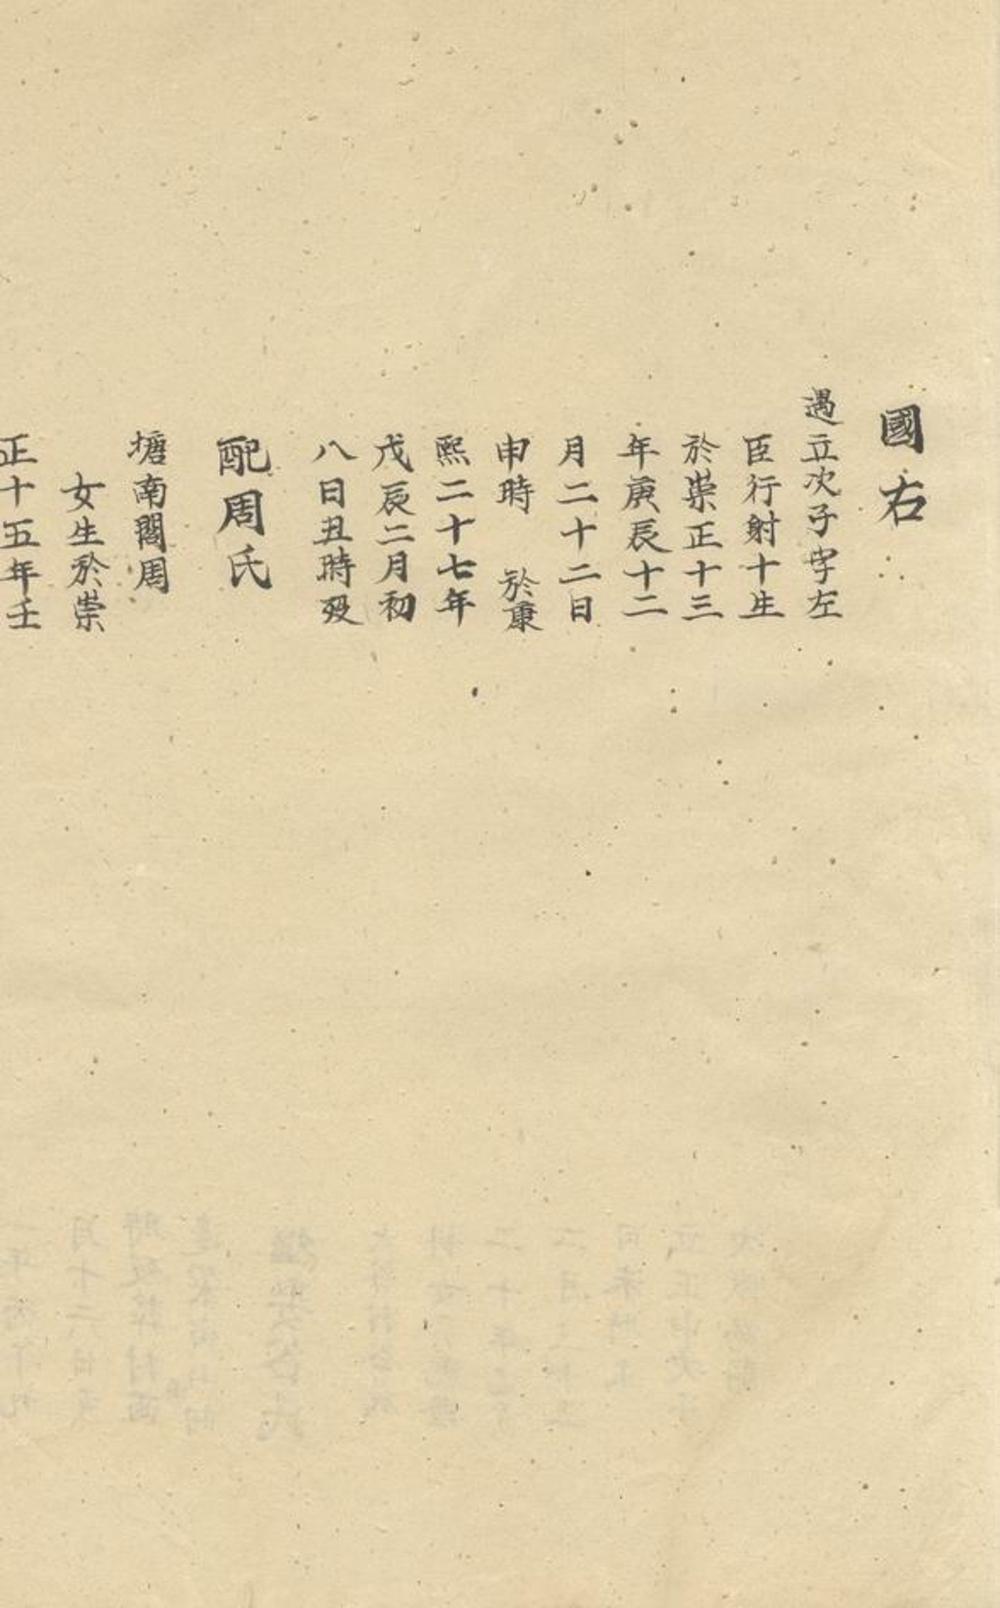 國右
遇立次子字左
臣行射十生
於崇正十三
年庚辰十二
月二十二日
申時 於康
熙二十七年
戊辰二月初
八日丑時歿
配周氏
塘南閣周
女生於崇
正十五年壬